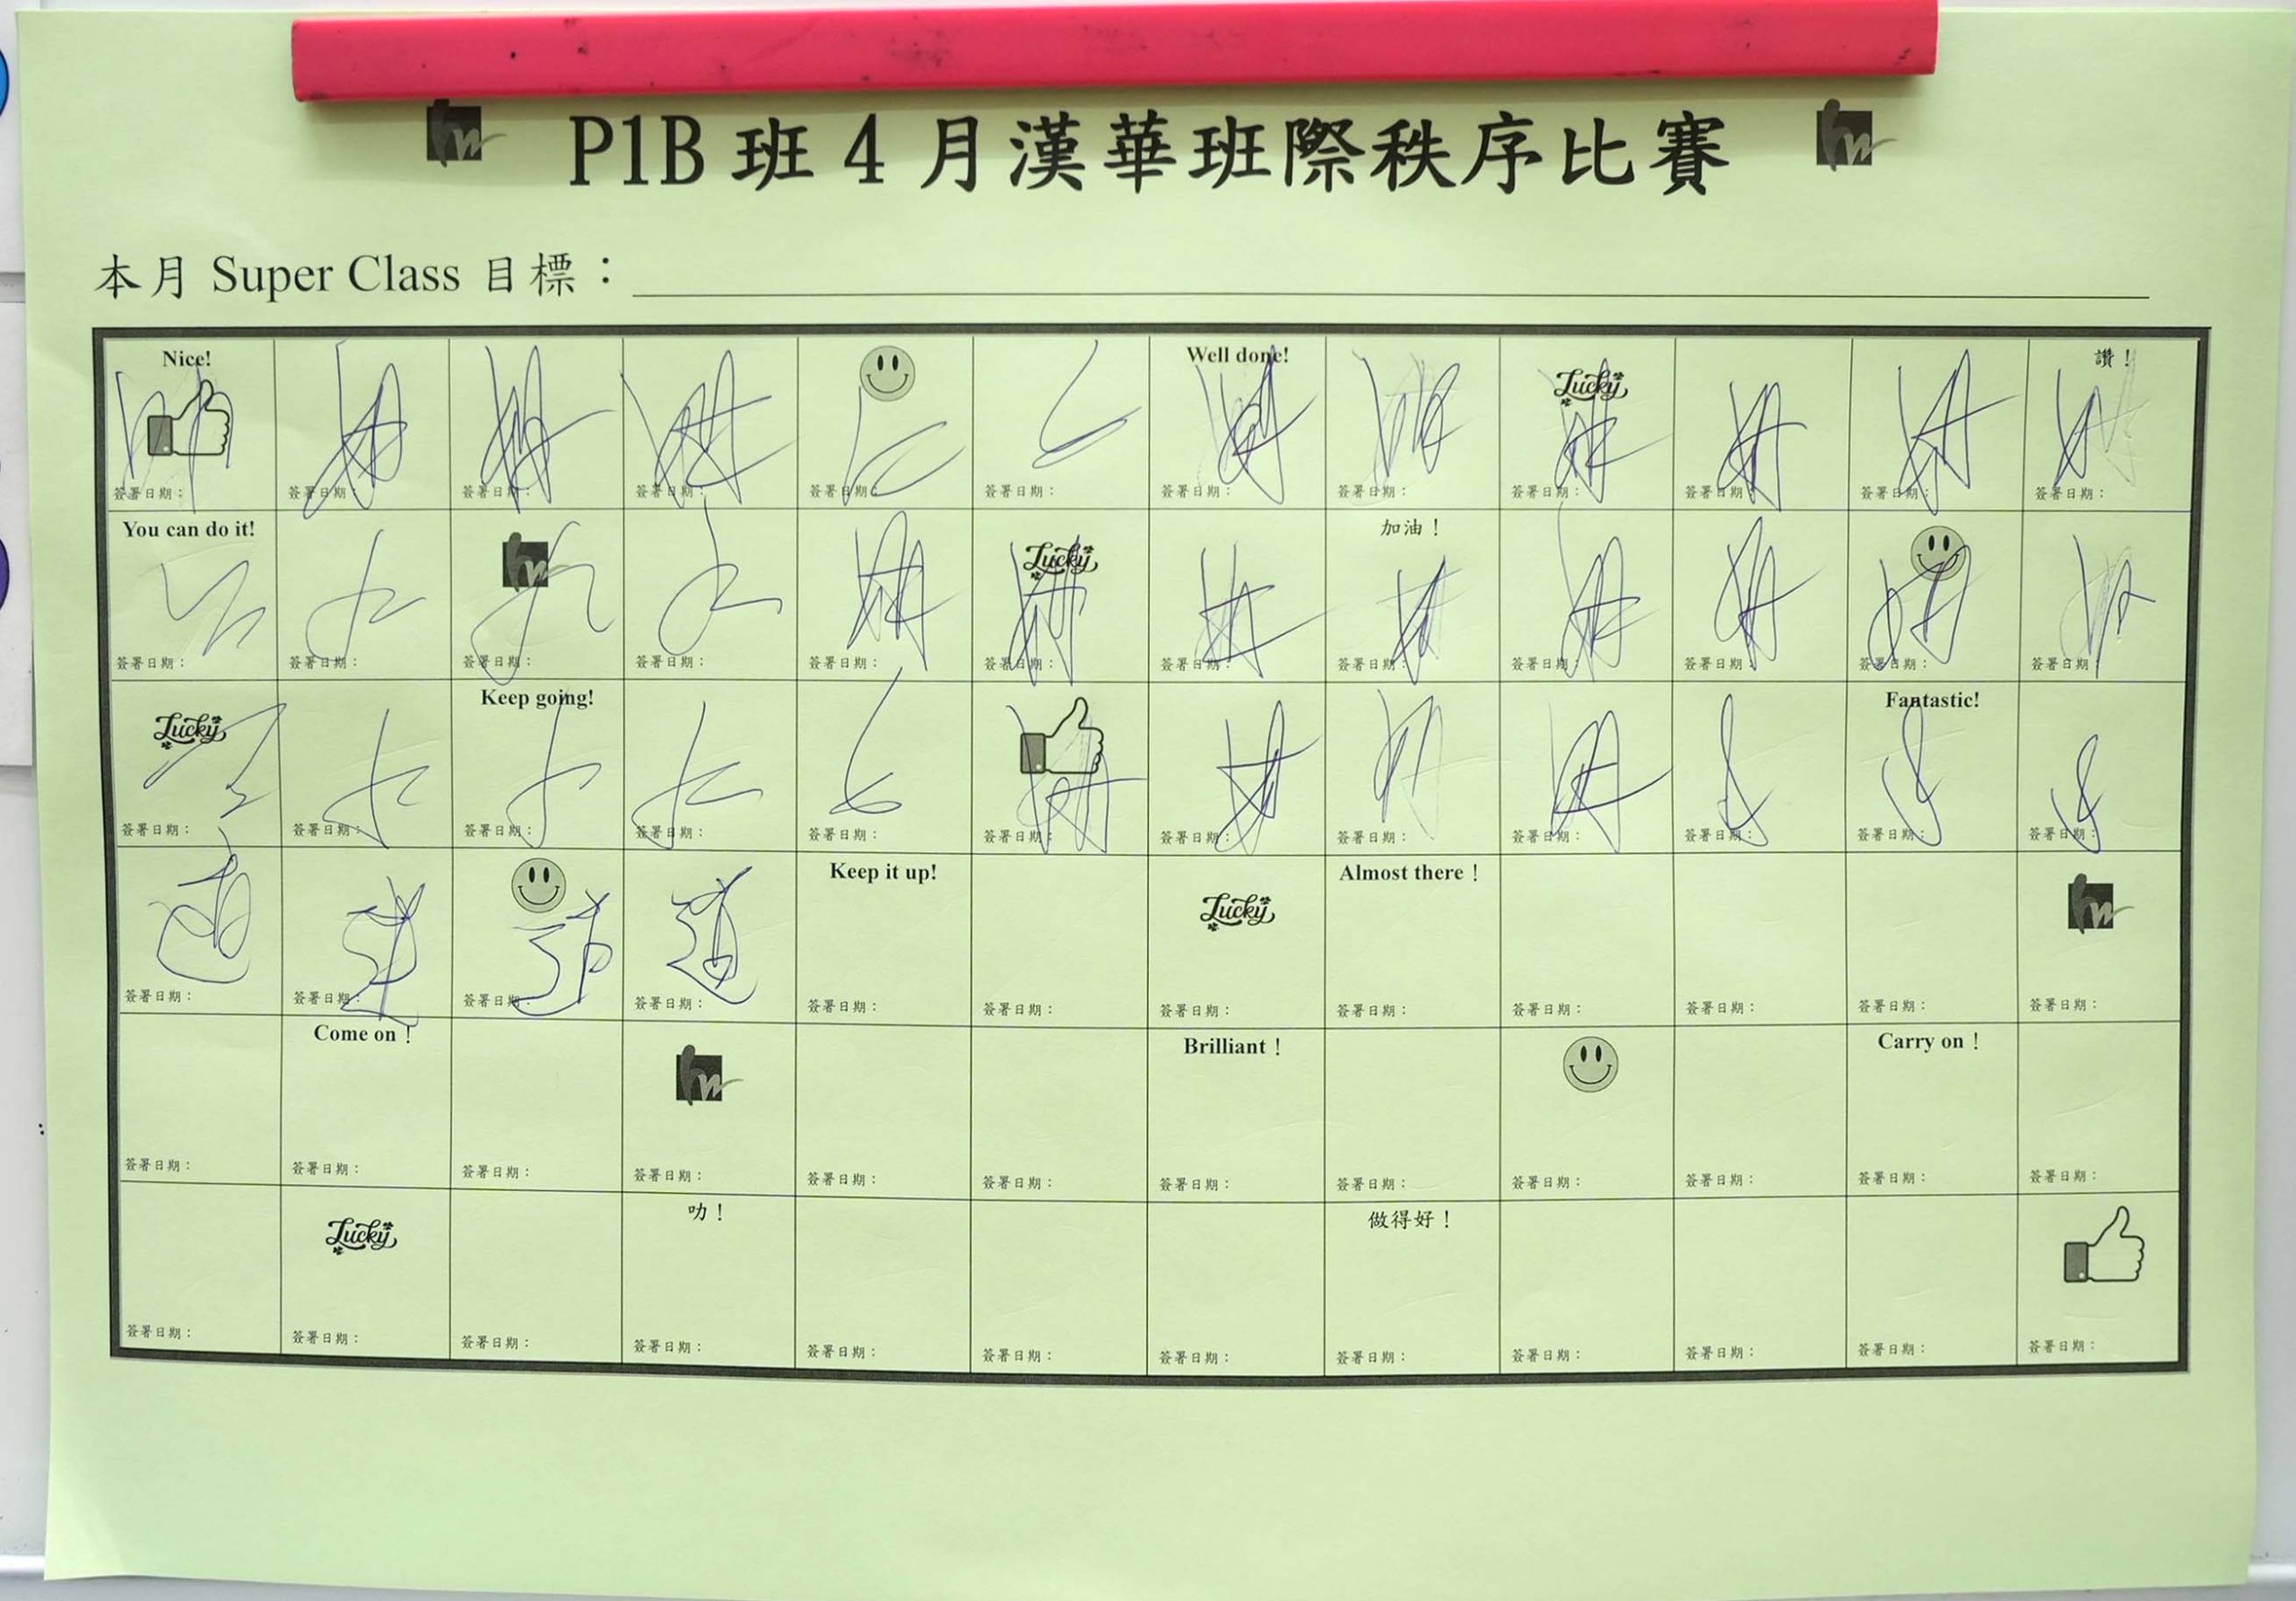 P1B 班 4 月漢華班際秩序比賽
本月 Super Class 目標：
Nice!
Well done!
Lucky
讚！
簽署日期： 簽署日期： 簽署日期： 簽署日期： 簽署日期： 簽署日期： 簽署日期： 簽署日期： 簽署日期： 簽署日期： 簽署日期： 簽署日期：
You can do it!
hw
Lucky
加油！
簽署日期： 簽署日期： 簽署日期： 簽署日期： 簽署日期： 簽署日期： 簽署日期： 簽署日期： 簽署日期： 簽署日期： 簽署日期： 簽署日期：
Lucky
Keep going!
Fantastic!
簽署日期： 簽署日期： 簽署日期： 簽署日期： 簽署日期： 簽署日期： 簽署日期： 簽署日期： 簽署日期： 簽署日期： 簽署日期： 簽署日期：
Keep it up!
Lucky
Almost there！
hw
簽署日期： 簽署日期： 簽署日期： 簽署日期： 簽署日期： 簽署日期： 簽署日期： 簽署日期： 簽署日期： 簽署日期： 簽署日期： 簽署日期：
Come on！
hw
Brilliant！
Carry on！
簽署日期： 簽署日期： 簽署日期： 簽署日期： 簽署日期： 簽署日期： 簽署日期： 簽署日期： 簽署日期： 簽署日期： 簽署日期： 簽署日期：
Lucky
叻！
做得好！
簽署日期： 簽署日期： 簽署日期： 簽署日期： 簽署日期： 簽署日期： 簽署日期： 簽署日期： 簽署日期： 簽署日期： 簽署日期： 簽署日期：